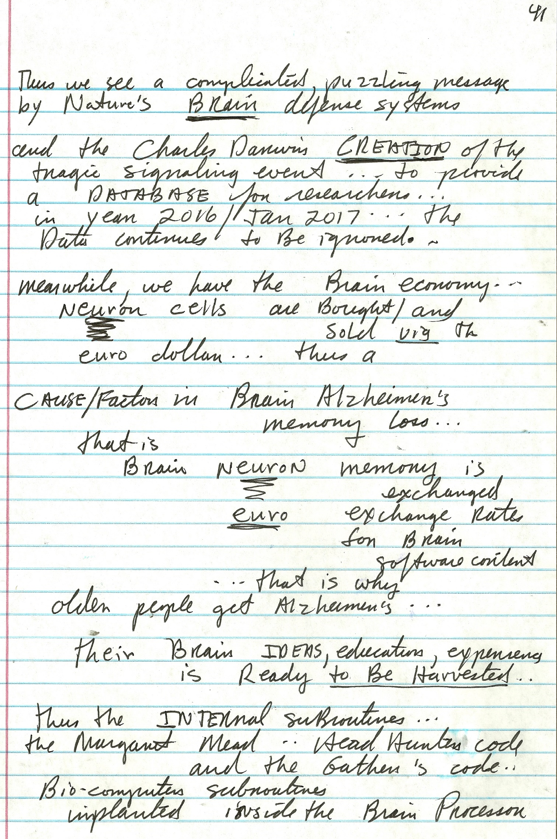 41
Thus we see a complicated, puzzling message
by Nature's BRAIN defense systems
and the Charles Darwin CREATION of the
tragic signaling event ... to provide
a DATABASE for researchers...
in year 2016/Jan 2017... the
Data continues to Be ignored. ~
meanwhile, we have the Brain economy...
Neuron cells are Bought/and
sold via th
euro dollar... thus a
CAUSE/Factor in Brain Alzheimer's
memory loss...
that is
Brain NEURON memory is
exchanged
euro exchange Rates
for Brain
software content
... that is why
older people get Alzheimer's ...
their Brain IDEAS, education, experiences
is Ready to Be Harvested..
thus the INTERNAL subroutines...
the Margaret Mead .. Head Hunter code
and the Gather's code..
Bio-computer subroutines
implanted inside the Brain Processor